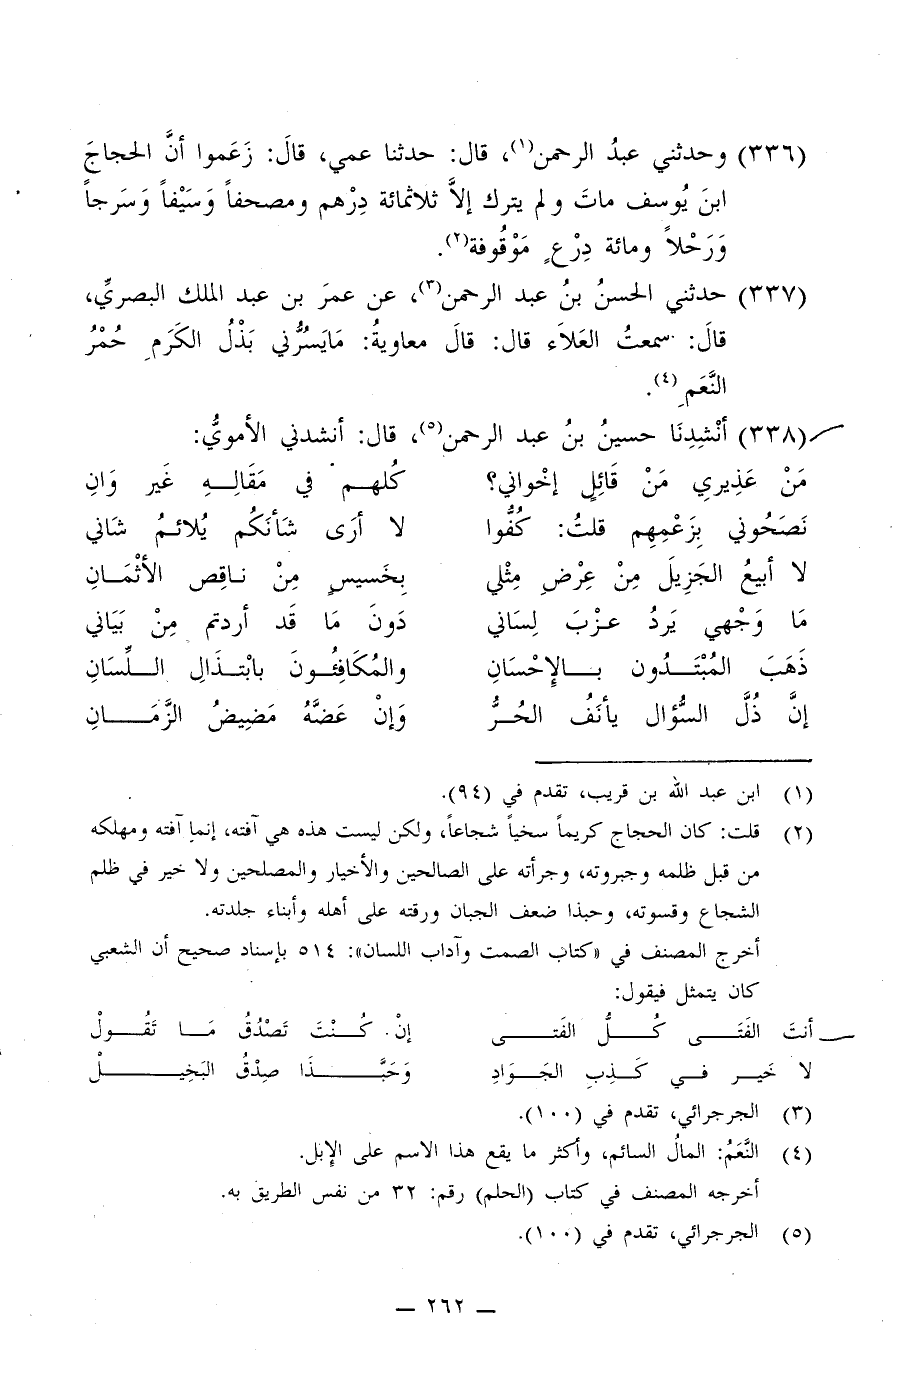 (٣٣٦) وحدثني عبدُ الرحمن(١)، قال: حدثنا عمي، قالَ: زَعَموا أنَّ الحجاجَ
ابنَ يُوسف ماتَ ولم يترك إلاَّ ثلاثمائة دِرْهم ومصحفاً وَسَيْفاً وَسَرجاً
وَرَحْلاً ومائة دِرْعٍ مَوْقُوفة(٢).
(٣٣٧) حدثني الحسنُ بنُ عبد الرحمن(٣)، عن عمرَ بن عبد الملك البصريِّ،
قالَ: سمعتُ العَلاَء قال: قالَ معاويةُ: مَايَسرُّني بَذْلُ الكَرَمِ حُمْرُ
النَّعَمِ(٤).
(٣٣٨) أنْشِدِنَا حسينُ بنُ عبد الرحمن(٥)، قال: أنشدني الأمويُّ:
مَنْ عَذِيرِي مَنْ قَائِلٍ إخْواني؟ كُلهـم في مَقَالِهِ غَير وَانِ
نَصَحُوني بِزَعْمِهم قلتُ: كُفُّوا لا أرَى شَأنَكُم يُلائمُ شَاني
لا أبيعُ الجَزِيلَ مِنْ عِرْضِ مِثْلي بِخَسيسٍ مِنْ ناقِص الأثْمَانِ
مَا وَجْهي يَردُ عزْبَ لِسَاني دَونَ مَا قَد أردتم مِنْ بَيَاني
ذَهَبَ المُبْتَدُون بالإحْسَانِ والمُكَافِئُونَ بابْتذَالِ اللِّسَانِ
إنَّ ذُلَّ السُّؤال يأنَفُ الحُرُّ وَإنْ عَضَّهُ مَضِيضُ الزَّمَانِ
(١) ابن عبد الله بن قريب، تقدم في (٩٤).
(٢) قلت: كان الحجاج كريماً سخياً شجاعاً، ولكن ليست هذه هي آفته، إنما آفته ومهلكه
من قبل ظلمه وجبروته، وجرأته على الصالحين والأخيار والمصلحين ولا خير في ظلم
الشجاع وقسوته، وحبذا ضعف الجبان ورقته على أهله وأبناء جلدته.
أخرج المصنف في «كتاب الصمت وآداب اللسان»: ٥١٤ بإسناد صحيح أن الشعبي
كان يتمثل فيقول:
أنتَ الفَتَى كُلُّ الفَتى إنْ كُنْتَ تَصْدُقُ مَا تَقُولْ
لا خَير في كَذِبِ الجَوَادِ وَحَبَّذَا صِدْقُ البَخِيلْ
(٣) الجرجرائي، تقدم في (١٠٠).
(٤) النَّعَمُ: المالُ السائم، وأكثر ما يقع هذا الاسم على الإبل.
أخرجه المصنف في كتاب (الحلم) رقم: ٣٢ من نفس الطريق به.
(٥) الجرجرائي، تقدم في (١٠٠).
— ٢٦٢ —